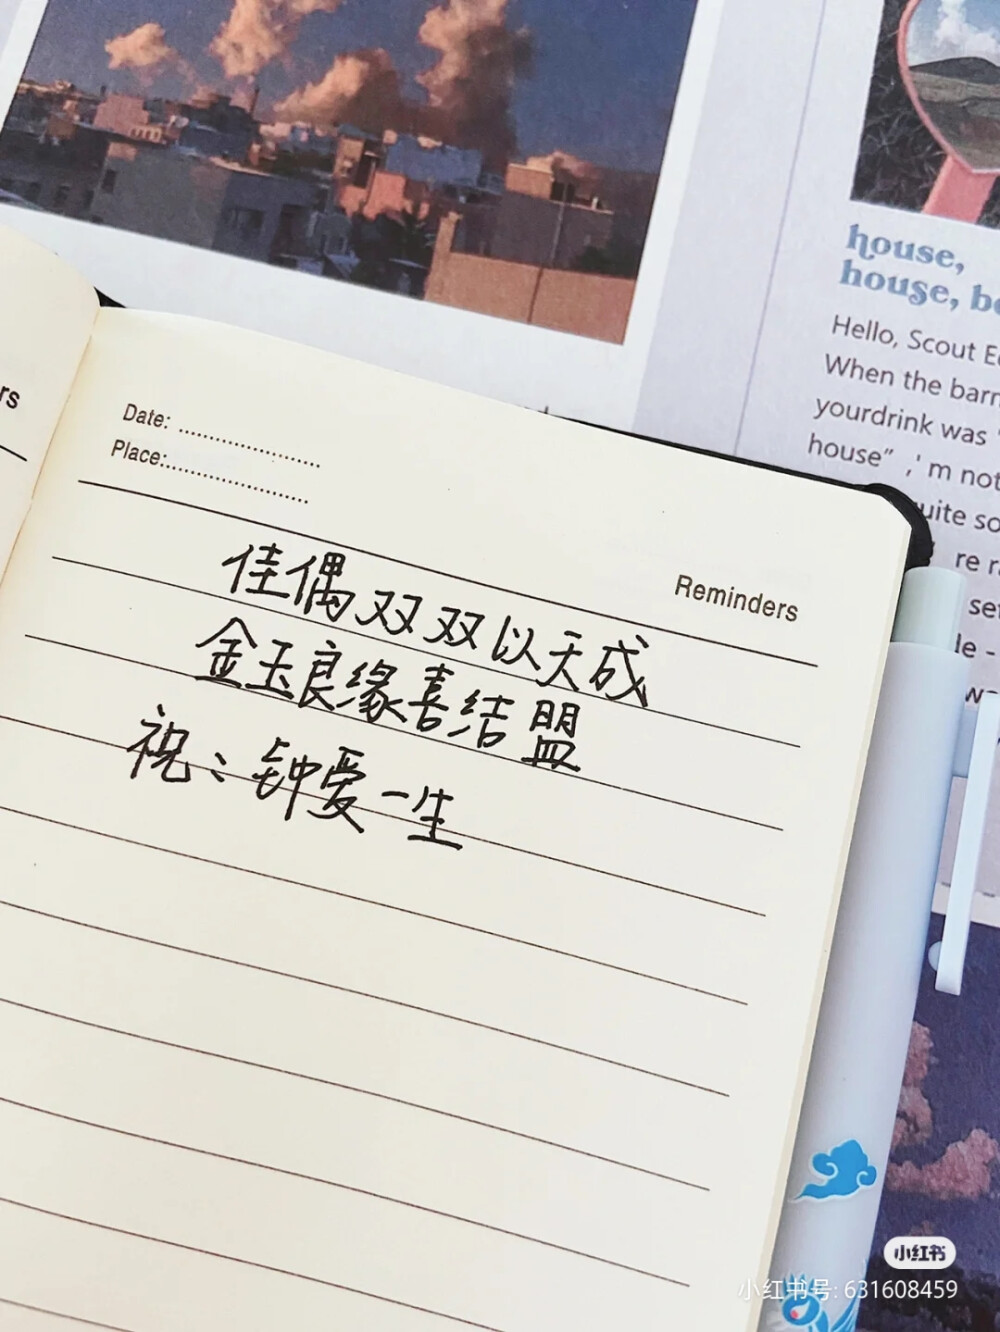 house,
house, b
Hello, Scout E
When the barn
yourdrink was
house" ,' m not
uite so
re r
set
le -
rs
Date:
Place:
Reminders
佳偶双双以天成
金玉良缘喜结盟
祝：钟爱一生
小红书
小红书号: 631608459